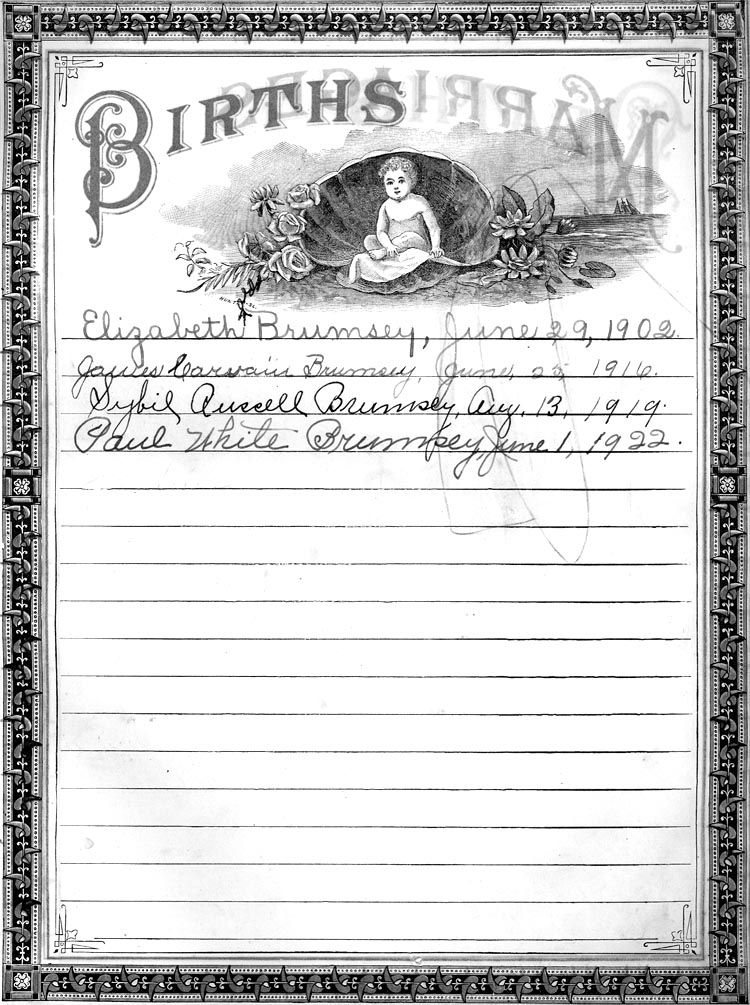 BIRTHS
Elizabeth Brumsey, June 29, 1902.
James Carvain Brumsey, June, 25, 1916.
Sybil Russell Brumsey, Aug. 13, 1919.
Paul White Brumsey, June 1, 1922.